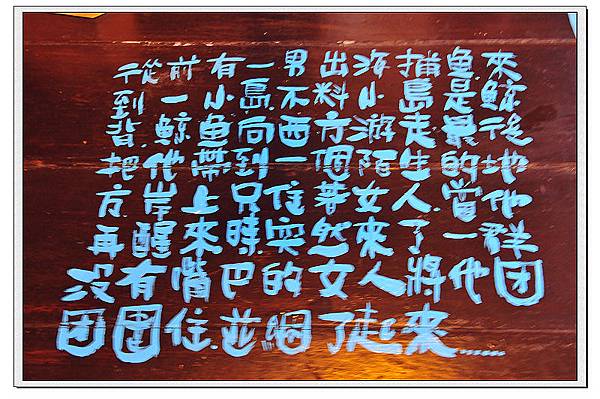 從前有一男出海捕魚來
到一小島不料小島是鯨
背鯨魚向西方游走最後
把他帶到一個陌生的地
方岸上只住著女人當他
再醒來時突然來了一群
沒有嘴巴的女人將他团
团團住並綑了起來......